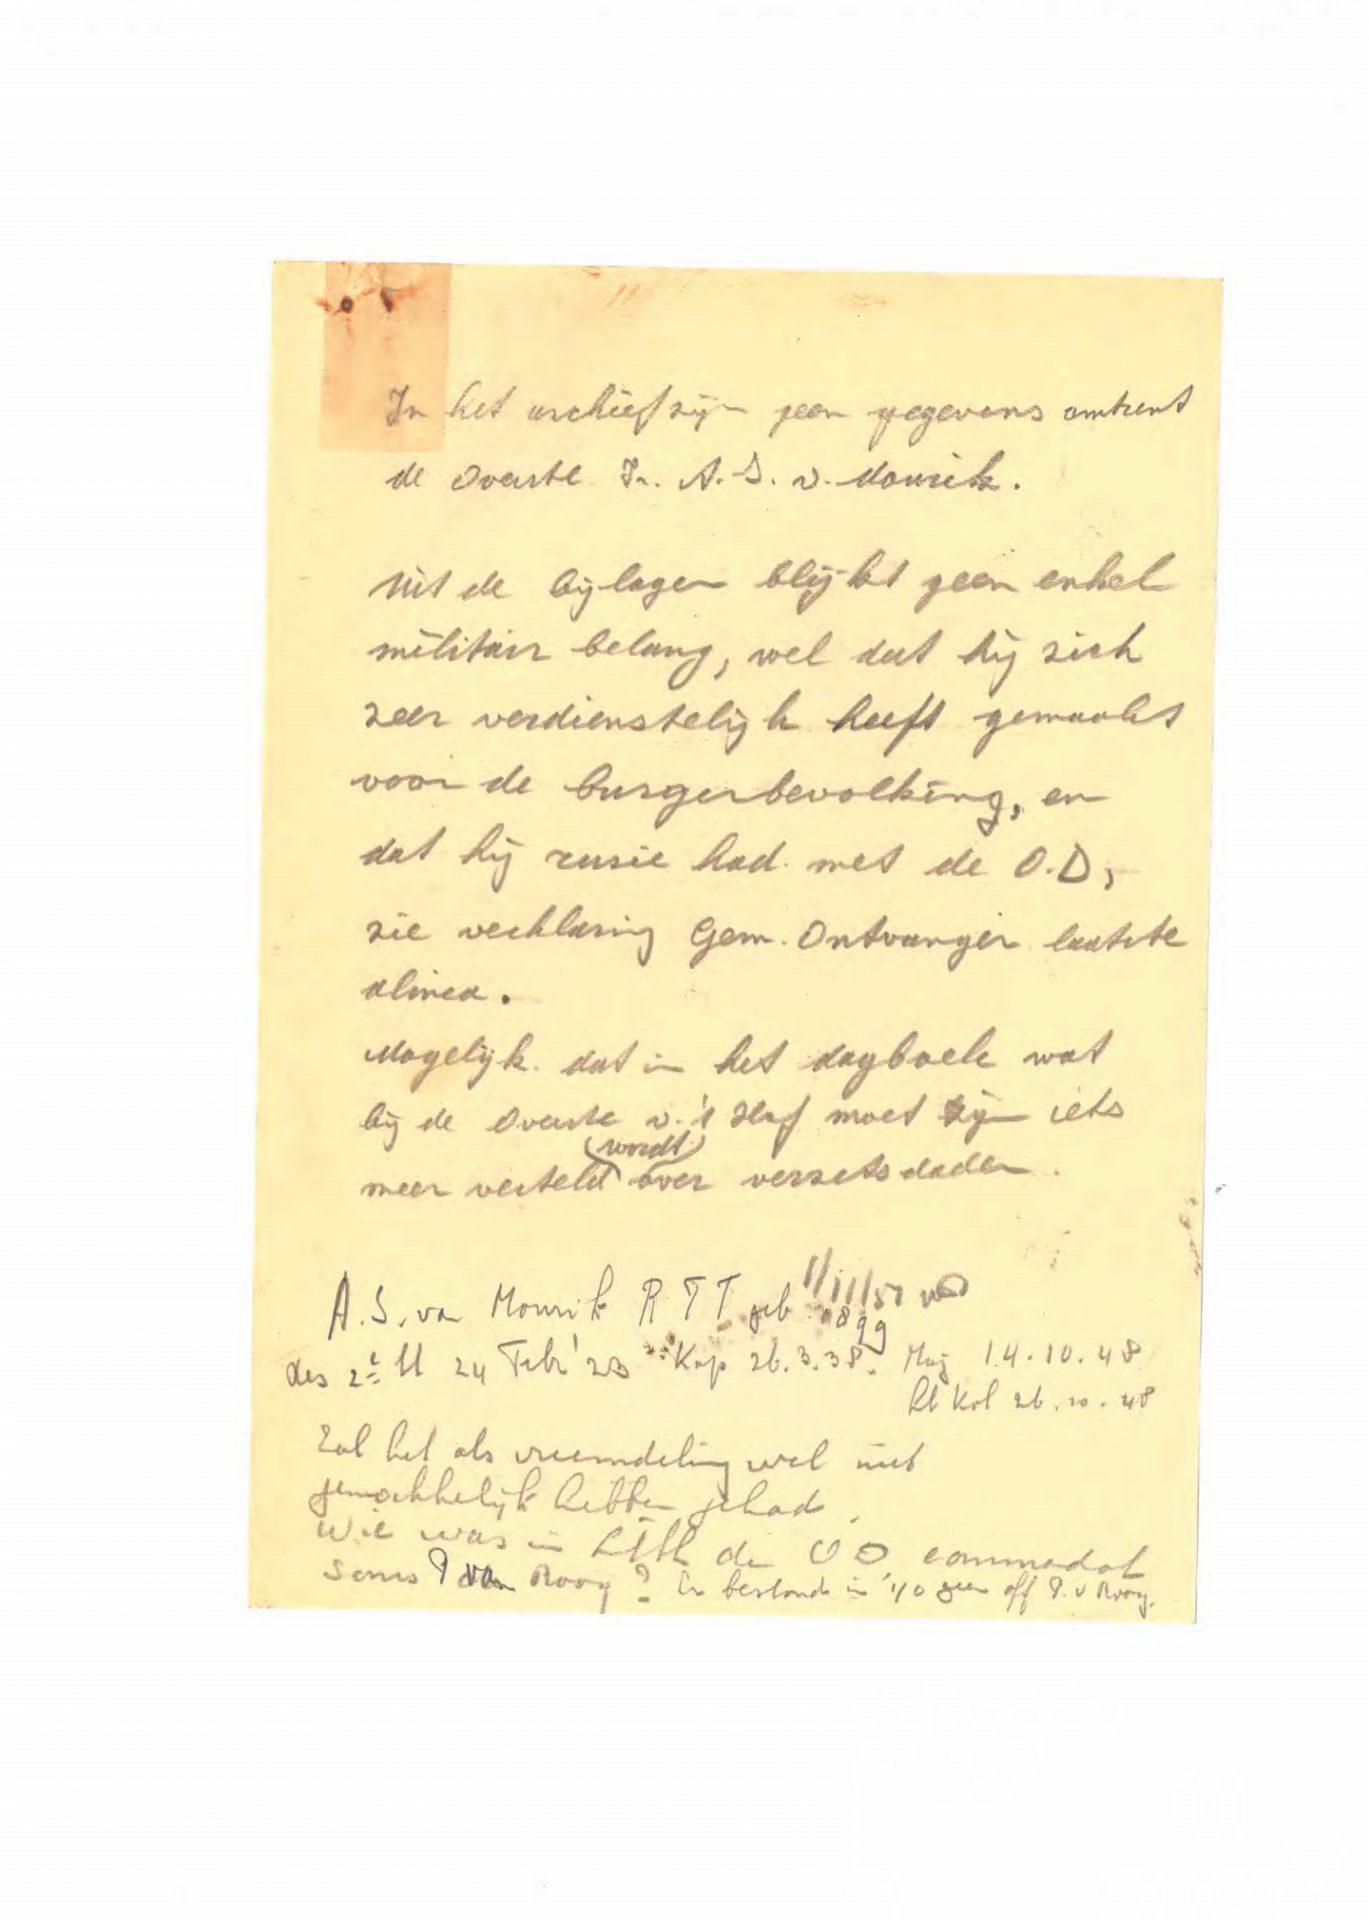 In het archief zijn geen gegevens omtrent
de Overste Ir. A. S. v. Mourik.
Uit de bijlagen blijkt geen enkel
militair belang, wel dat hij zich
zeer verdienstelijk heeft gemaakt
voor de burgerbevolking, en
dat hij ruzie had met de O.D,
zie verklaring Gem. Ontvanger laatste
alinea.
Mogelijk dat in het dagboek wat
bij de Overste v. 't Hof moet zijn iets
(wordt)
meer verteld over verzetsdaden.
1/11/51
A. S. van Mourik R T T geb 1899
des 2e Lt 24 Febr '23 Kap 26.3.38. Maj 14.10.48
Lt Kol 26.10.48
Zal het als vreemdeling wel niet
gemakkelijk hebben gehad.
Wie was in Lith de OD commandat
Soms P van Rooy? Er bestond in '40 geen off P. v Rooy.